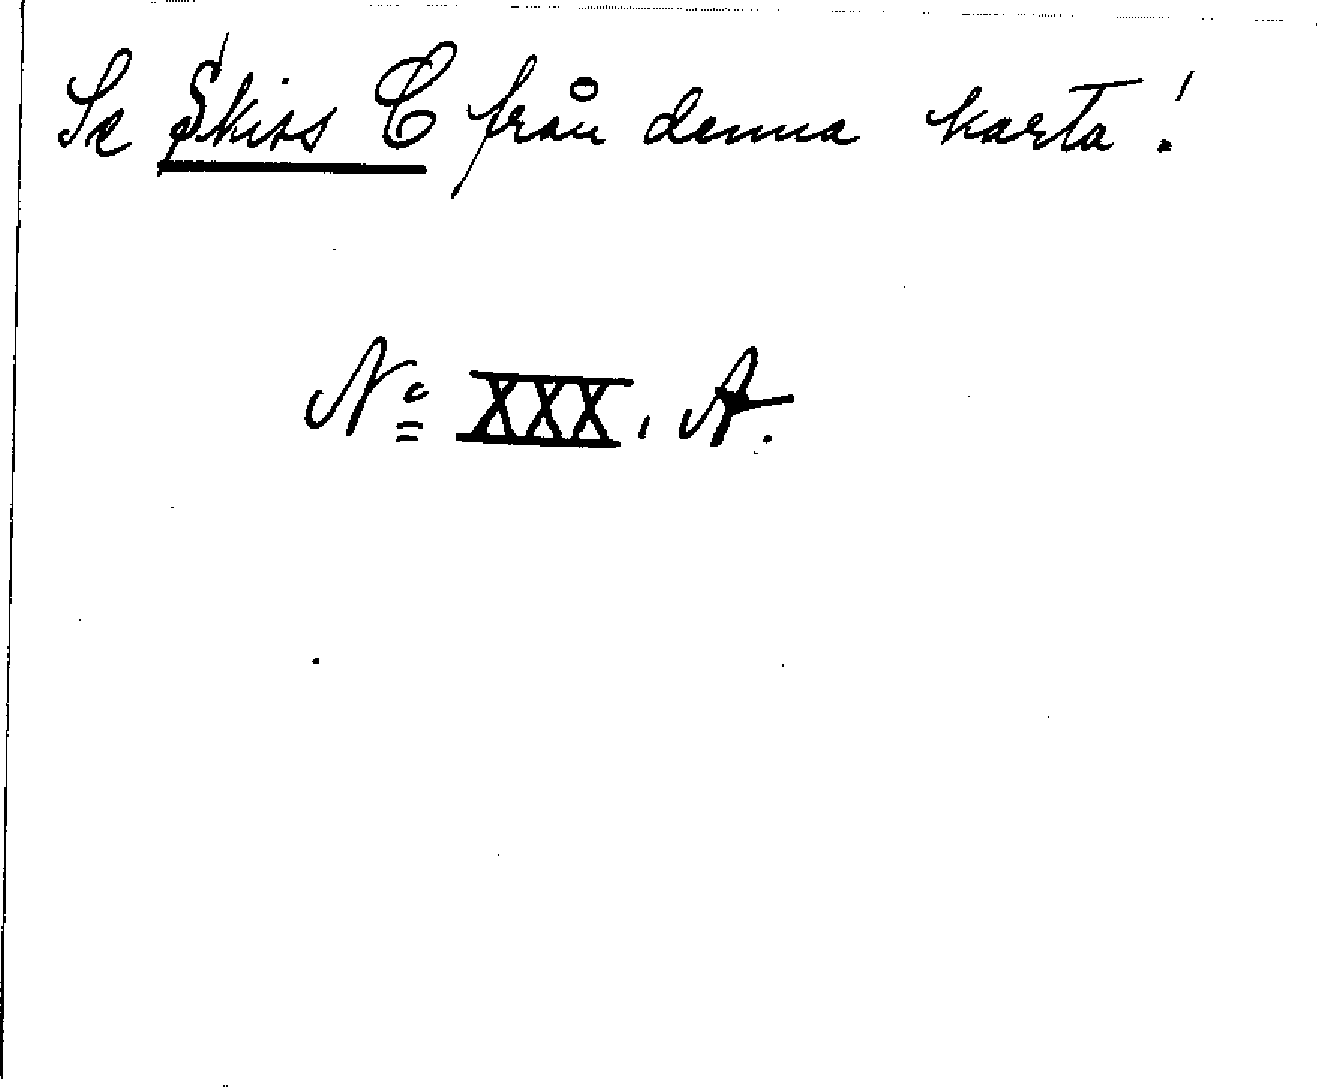 Se Skiss C från denna karta!
No XXX, A.